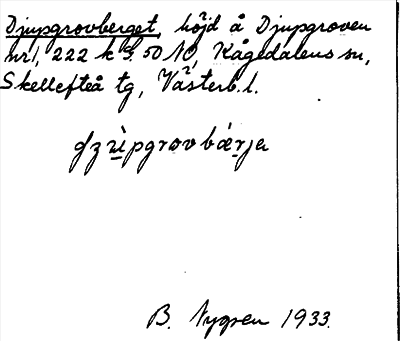 Djupgrovberget, höjd å Djupgroven
nr1, 222 k S. 50 NO, Kågedalens sn,
Skellefteå tg, Västerb. l.
B. Nygren 1933.